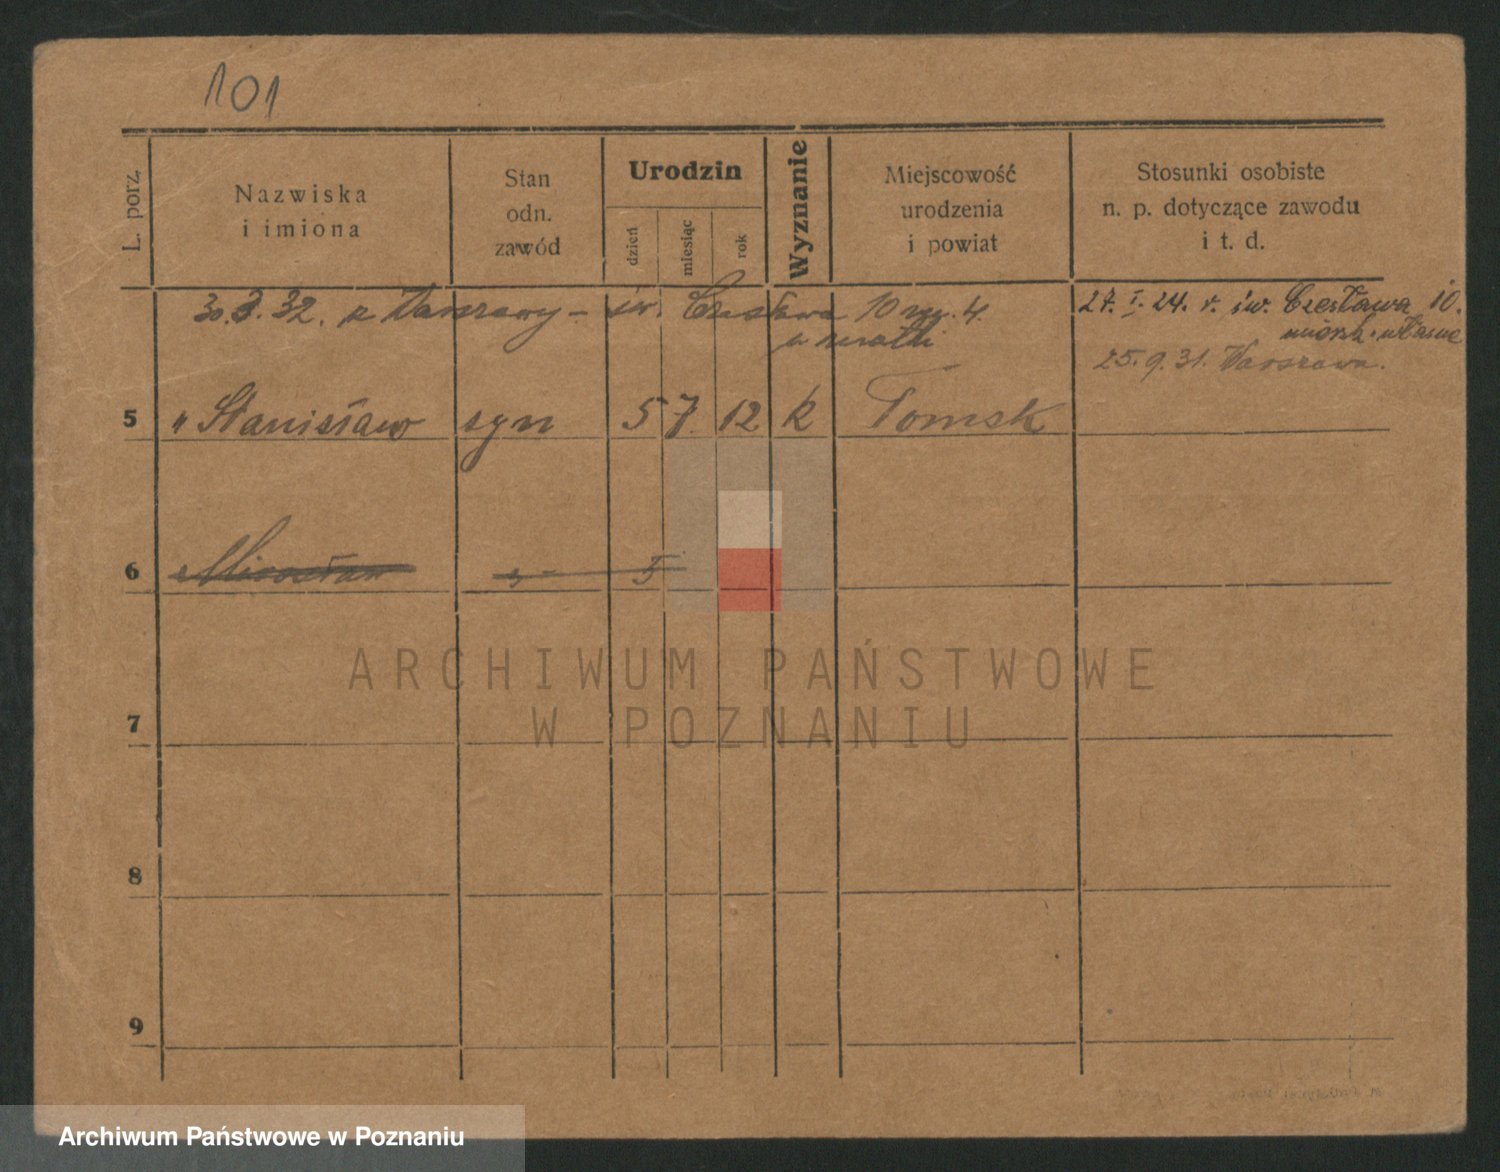 101
L. porz.
Nazwiska
i imiona
Stan
odn.
zawód
Urodzin
dzień
miesiąc
rok
Wyznanie
Miejscowość
urodzenia
i powiat
Stosunki osobiste
n. p. dotyczące zawodu
i t. d.
30.3.32. z Warszawy - św. Czesława 10 m. 4.
u matki
27. I. 24. r. św. Czesława 10.
własne
25. 9. 31. Warszawa.
5 " Stanisław syn 5 7. 12 k Tomsk
6 Mirosław
7
8
9
ARCHIWUM PAŃSTWOWE
W POZNANIU
Archiwum Państwowe w Poznaniu